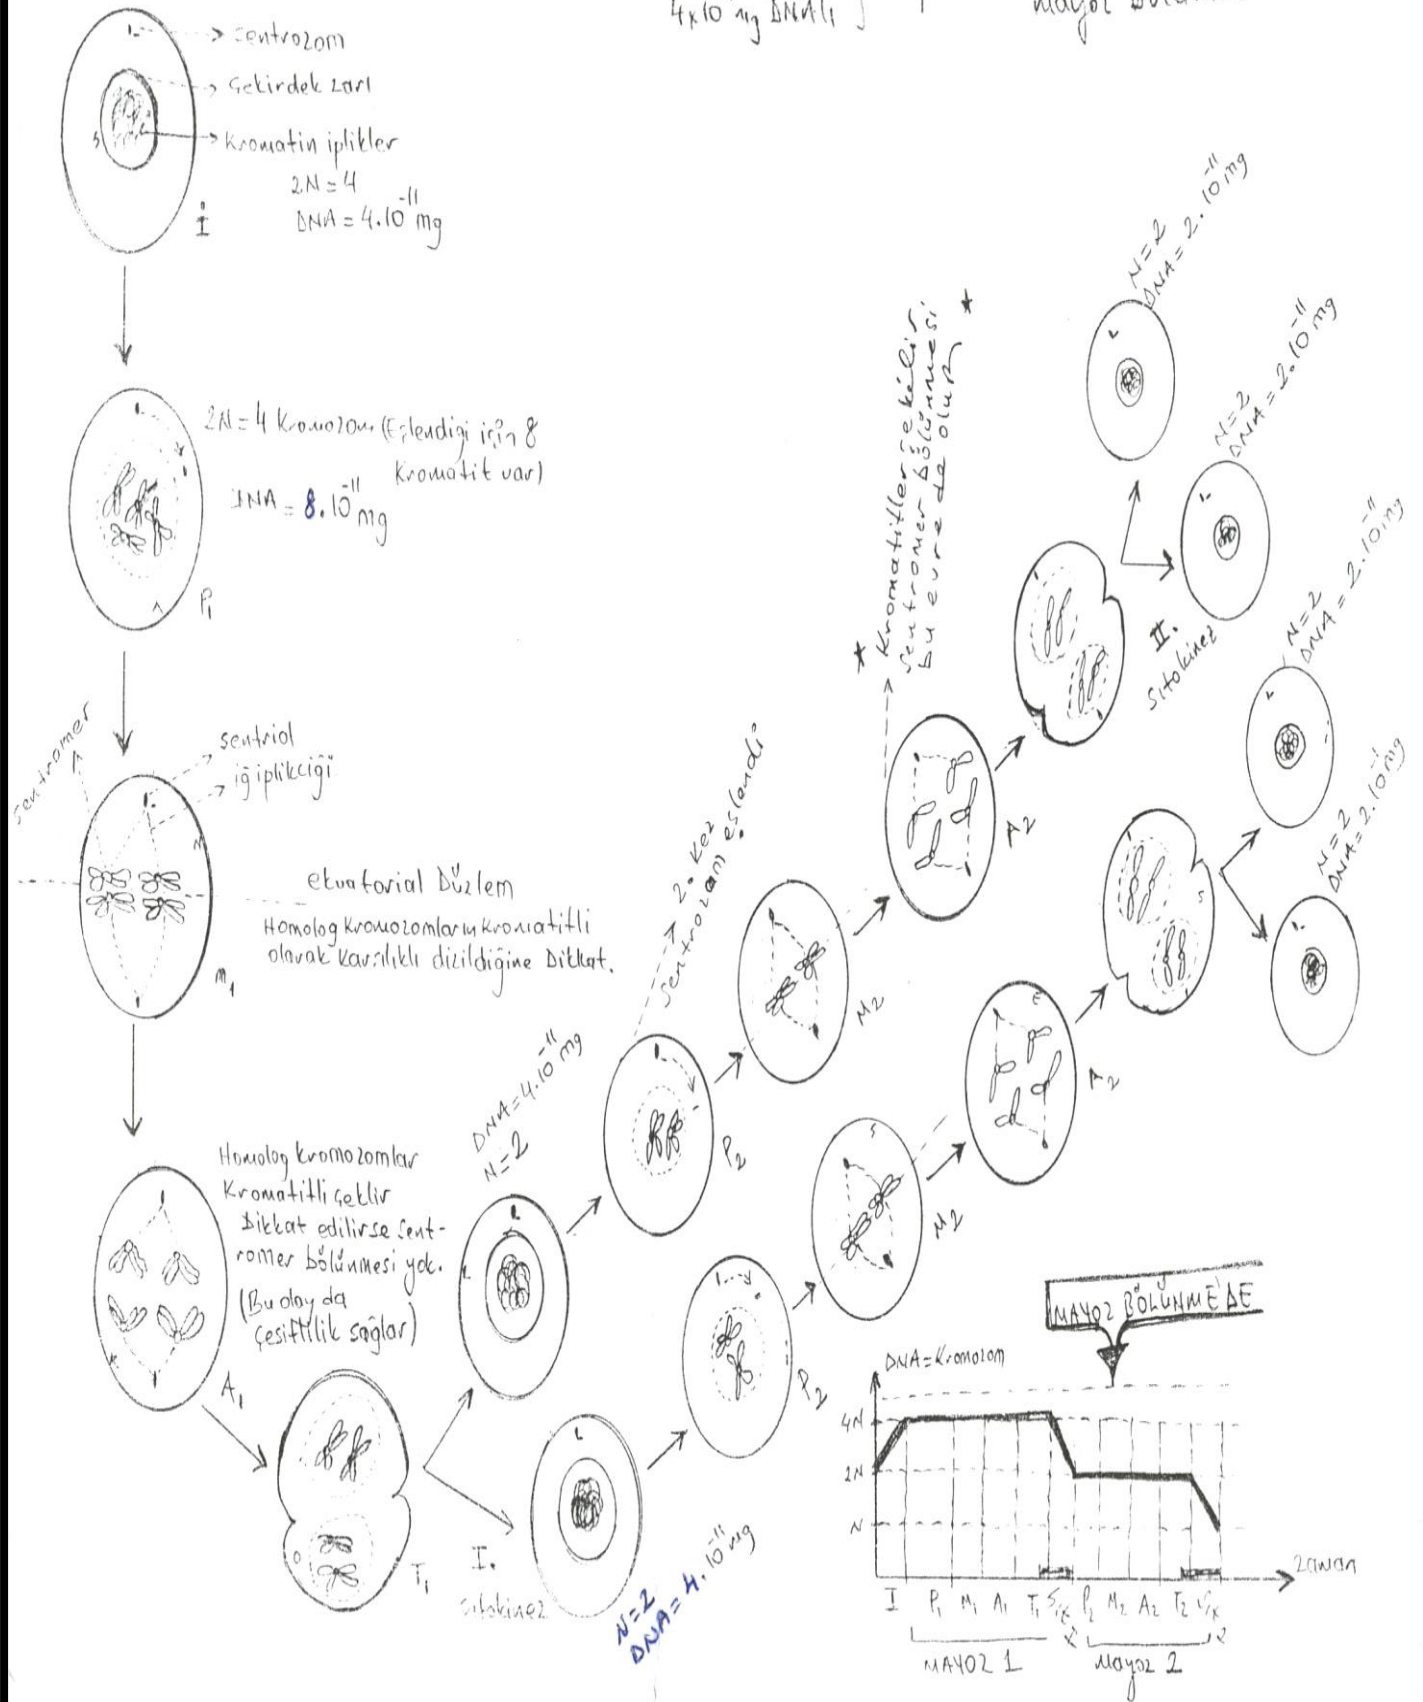 4x10 mg DNA'lı }
Sentrozom
Çekirdek zarı
Kromatin iplikler
2N=4
DNA=4.10⁻¹¹ mg
İ
2N=4 Kromozom (Eşlendiği için 8
Kromatit var)
DNA=8.10⁻¹¹ mg
P₁
Sentromer
sentriol
iğ iplikciği
ekvatorial Düzlem
Homolog kromozomların kromatitli
olarak karşılıklı dizildiğine Dikkat.
M₁
Homolog kromozomlar
Kromatitli çeklir
Dikkat edilirse sent-
romer bölünmesi yok.
(Bu olay da
çeşitlilik sağlar)
A₁
T₁
I.
Sitokinez
DNA=4.10⁻¹¹ mg
N=2
N=2
DNA=4.10⁻¹¹ mg
2. kez
sentrozom eşlendi
P₂
P₂
M₂
M₂
* Kromatitler çekilir
Sentromer bölünmesi
bu evrede olur *
A₂
A₂
II.
Sitokinez
N=2
DNA=2.10⁻¹¹ mg
N=2
DNA=2.10⁻¹¹ mg
N=2
DNA=2.10⁻¹¹ mg
N=2
DNA=2.10⁻¹ mg
MAYOZ BÖLÜNMEDE
DNA=Kromozom
4N
2N
N
Zaman
I P₁ M₁ A₁ T₁ P₂ M₂ A₂ T₂
MAYOZ 1 Mayoz 2